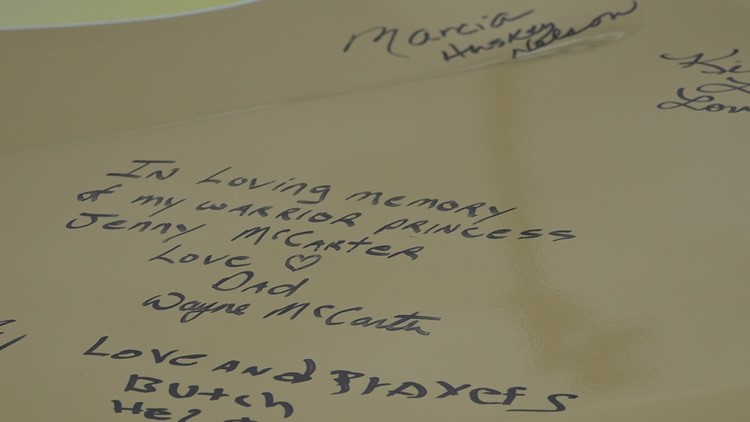 Marcia
Huskey
Nelson
In Loving memory
of my warrior princess
Jenny McCarter
Love ♡
Dad
Wayne McCarter
Love and Prayers
Butch